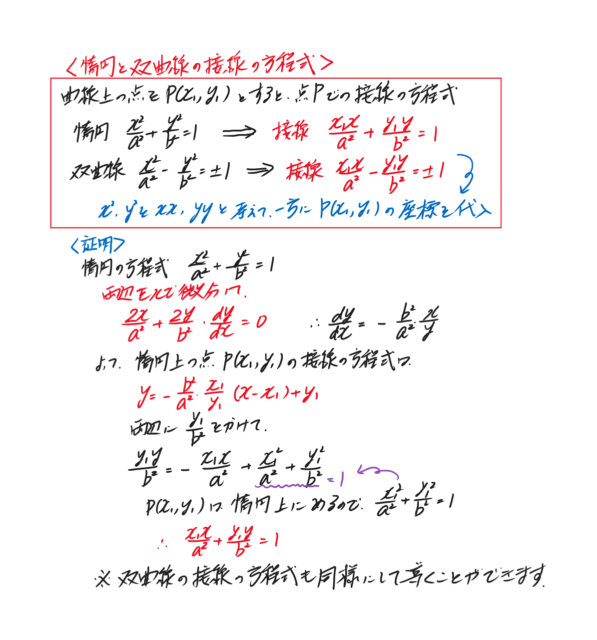 <楕円と双曲線の接線の方程式>
曲線上の点をP(x₁,y₁)とすると、点Pでの接線の方程式
楕円 x²/a²+y²/b²=1 ⟹ 接線 x₁x/a²+y₁y/b²=1
双曲線 x²/a²-y²/b²=±1 ⟹ 接線 x₁x/a²-y₁y/b²=±1
x²,y²をxx,yyと考えて、一方にP(x₁,y₁)の座標を代入
<証明>
楕円の方程式 x²/a²+y²/b²=1
両辺をxで微分して、
2x/a²+2y/b²・dy/dx=0 ∴dy/dx=-b²/a²・x/y
よって、楕円上の点P(x₁,y₁)の接線の方程式は、
y=-b²/a²・x₁/y₁(x-x₁)+y₁
両辺にy₁/b²をかけて、
y₁y/b²=-x₁x/a²+x₁²/a²+y₁²/b² =1
P(x₁,y₁)は楕円上にあるので、x₁²/a²+y₁²/b²=1
∴ x₁x/a²+y₁y/b²=1
※双曲線の接線の方程式も同様にして導くことができます